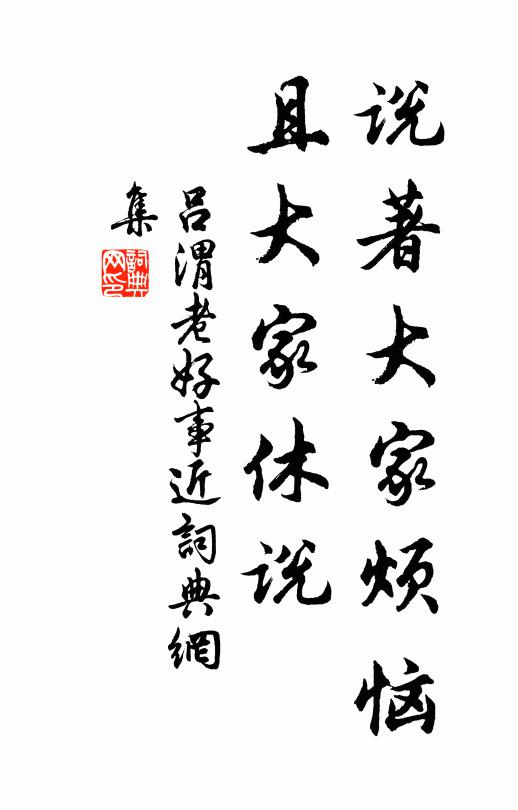 说著大家烦恼
且大家休说
吕渭老好事近詞典網
集
詞典网印